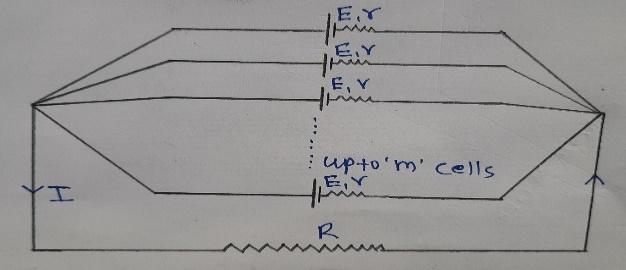 E, r
E, r
E, r
upto 'm' cells
E, r
I
R